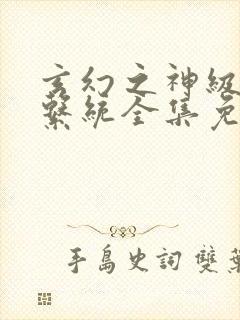 玄幻之神級
繫統全集免
手島史詞 雙葉